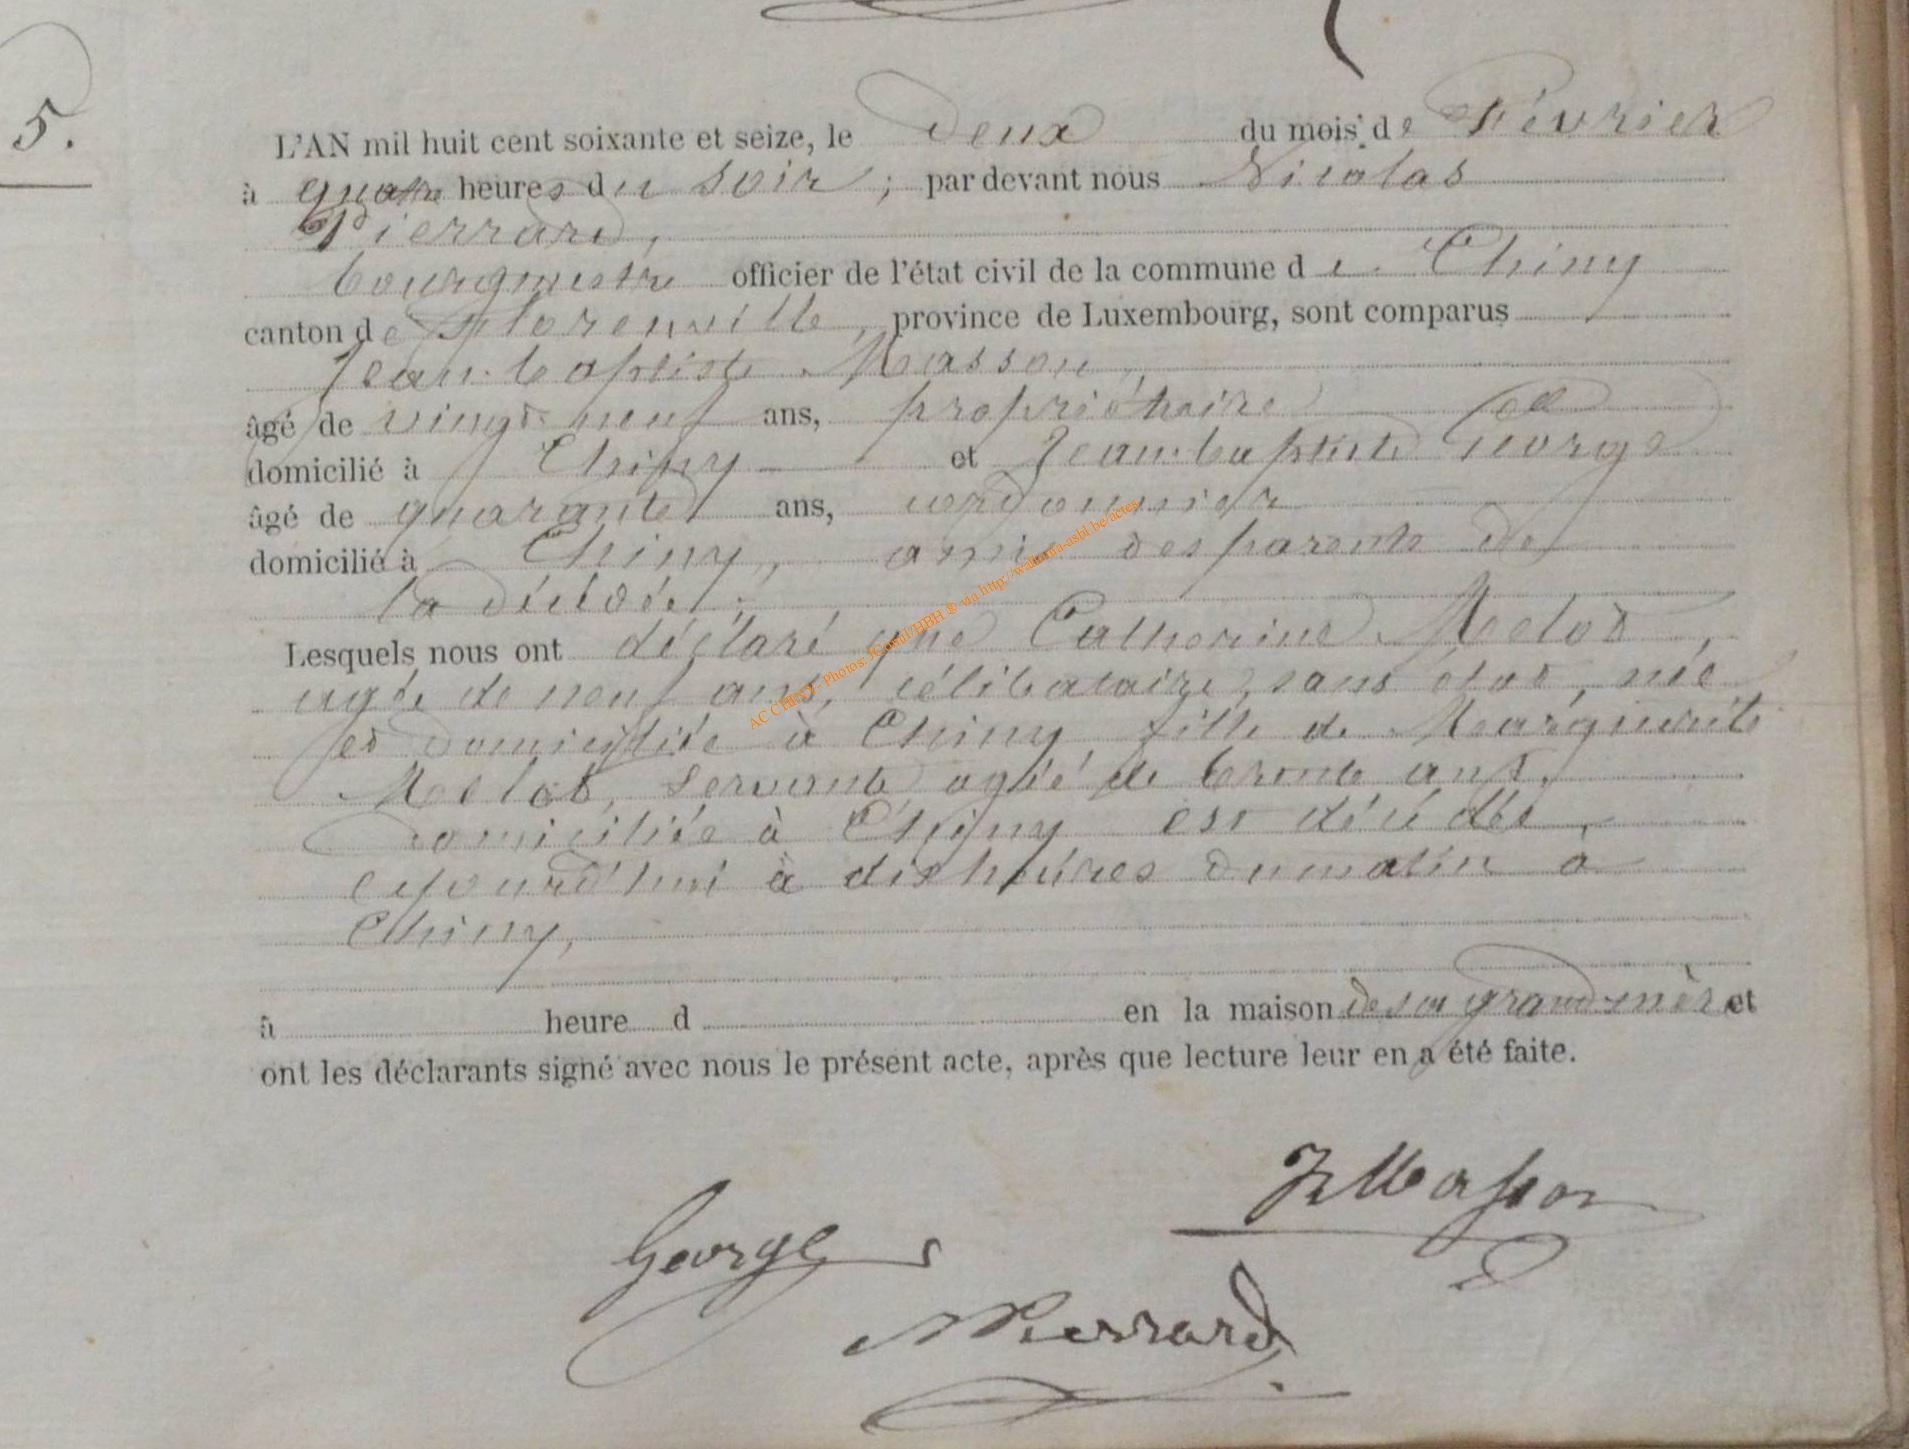 5.
L'AN mil huit cent soixante et seize, le deux du mois de Février
à quatre heures du soir ; par devant nous Nicolas
Pierrard,
bourgmestre officier de l'état civil de la commune de Chiny
canton de Florenville, province de Luxembourg, sont comparus
Jean-baptiste Masson,
âgé de vingt neuf ans, propriétaire
domicilié à Chiny et Jean-baptiste George
âgé de quarante ans, cordonnier
domicilié à Chiny, amis des parents de
la décédée,
Lesquels nous ont déclaré que Catherine Melot,
agée de neuf ans, célibataire, sans état, née
et domiciliée à Chiny, fille de Marguerite
Melot, servante agée de trente ans,
domiciliée à Chiny est décédée,
aujourd'hui à dix heures du matin a
Chiny,
à heure d en la maison de sa grand-mère et
ont les déclarants signé avec nous le présent acte, après que lecture leur en a été faite.
Masson
George
N Pierrard
AC CHINY - Photos: JComil/HBH © via http://wallonia-asbl.be/actes